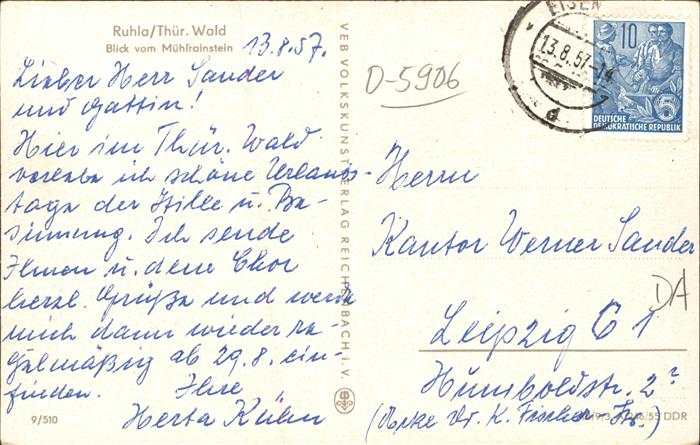 Ruhla/Thür. Wald
Blick vom Mühlrainstein
13.8.57.
Lieber Herr Sander
und Gattin!
Hier im Thür. Wald
verlebe ich schöne Urlaubs-
tage der Stille u. Be-
sinnung. Ich sende
Ihnen u. dem Chor
herzl. Grüße und werde
mich dann wieder re-
gelmäßig ab 29.8. ein-
finden. Ihre
Herta Kühn
9/510
VEB VOLKSKUNSTVERLAG REICHENBACH i. V.
D-5906
EISEN
13.8.57-14
d
10
5
DEUTSCHE
DEMOKRATISCHE REPUBLIK
Herrn
Kantor Werner Sander
DA
Leipzig C 1
Humboldstr. 2?
(Ecke Dr. K. Fischer Str.)
55 DDR